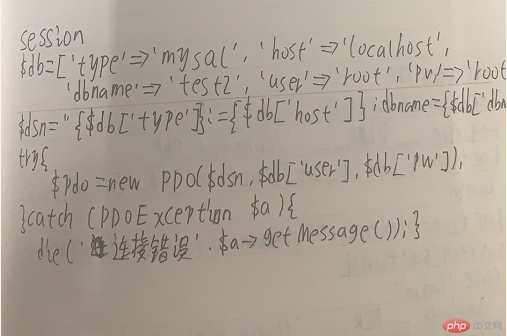 session
$db=['type'=>'mysql', 'host'=>'localhost',
'dbname'=>'test2', 'user'=>'root', 'pw'=>'root
$dsn="{$db['type']}:={$db['host']};dbname={$db['dbn
try{
$pdo=new PDO($dsn,$db['user'],$db['pw']);
}catch (PDOException $a){
die('连接错误'.$a->getMessage());}
php 中文网